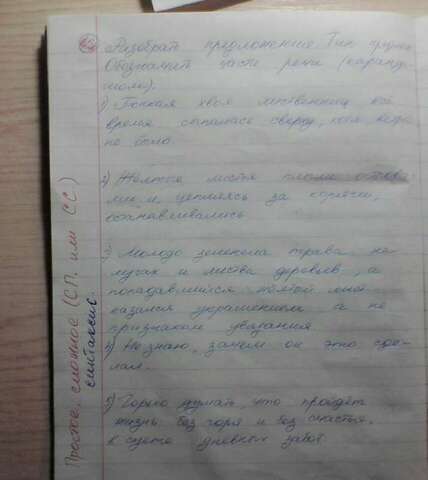 Разобрать предложение. Тип придат
Обозначить части речи (каранда-
шом).
1) Тонкая хвоя лиственниц всё
время сыпалась сверху, хотя ветра
не было.
2) Желтые листья плыли
и, цепляясь за коряги,
останавливались
3) Молодо зеленела трава на
лугах и листва деревьев, а
попадавшийся жёлтый лист
казался украшением а не
признаком увядания
4) Не знаю, зачем он это сде-
лал.
5) Горько думать, что пройдёт
жизнь без горя и без счастья,
в суете дневных забот
Простое, сложное (СП. или СС)
синтаксис.